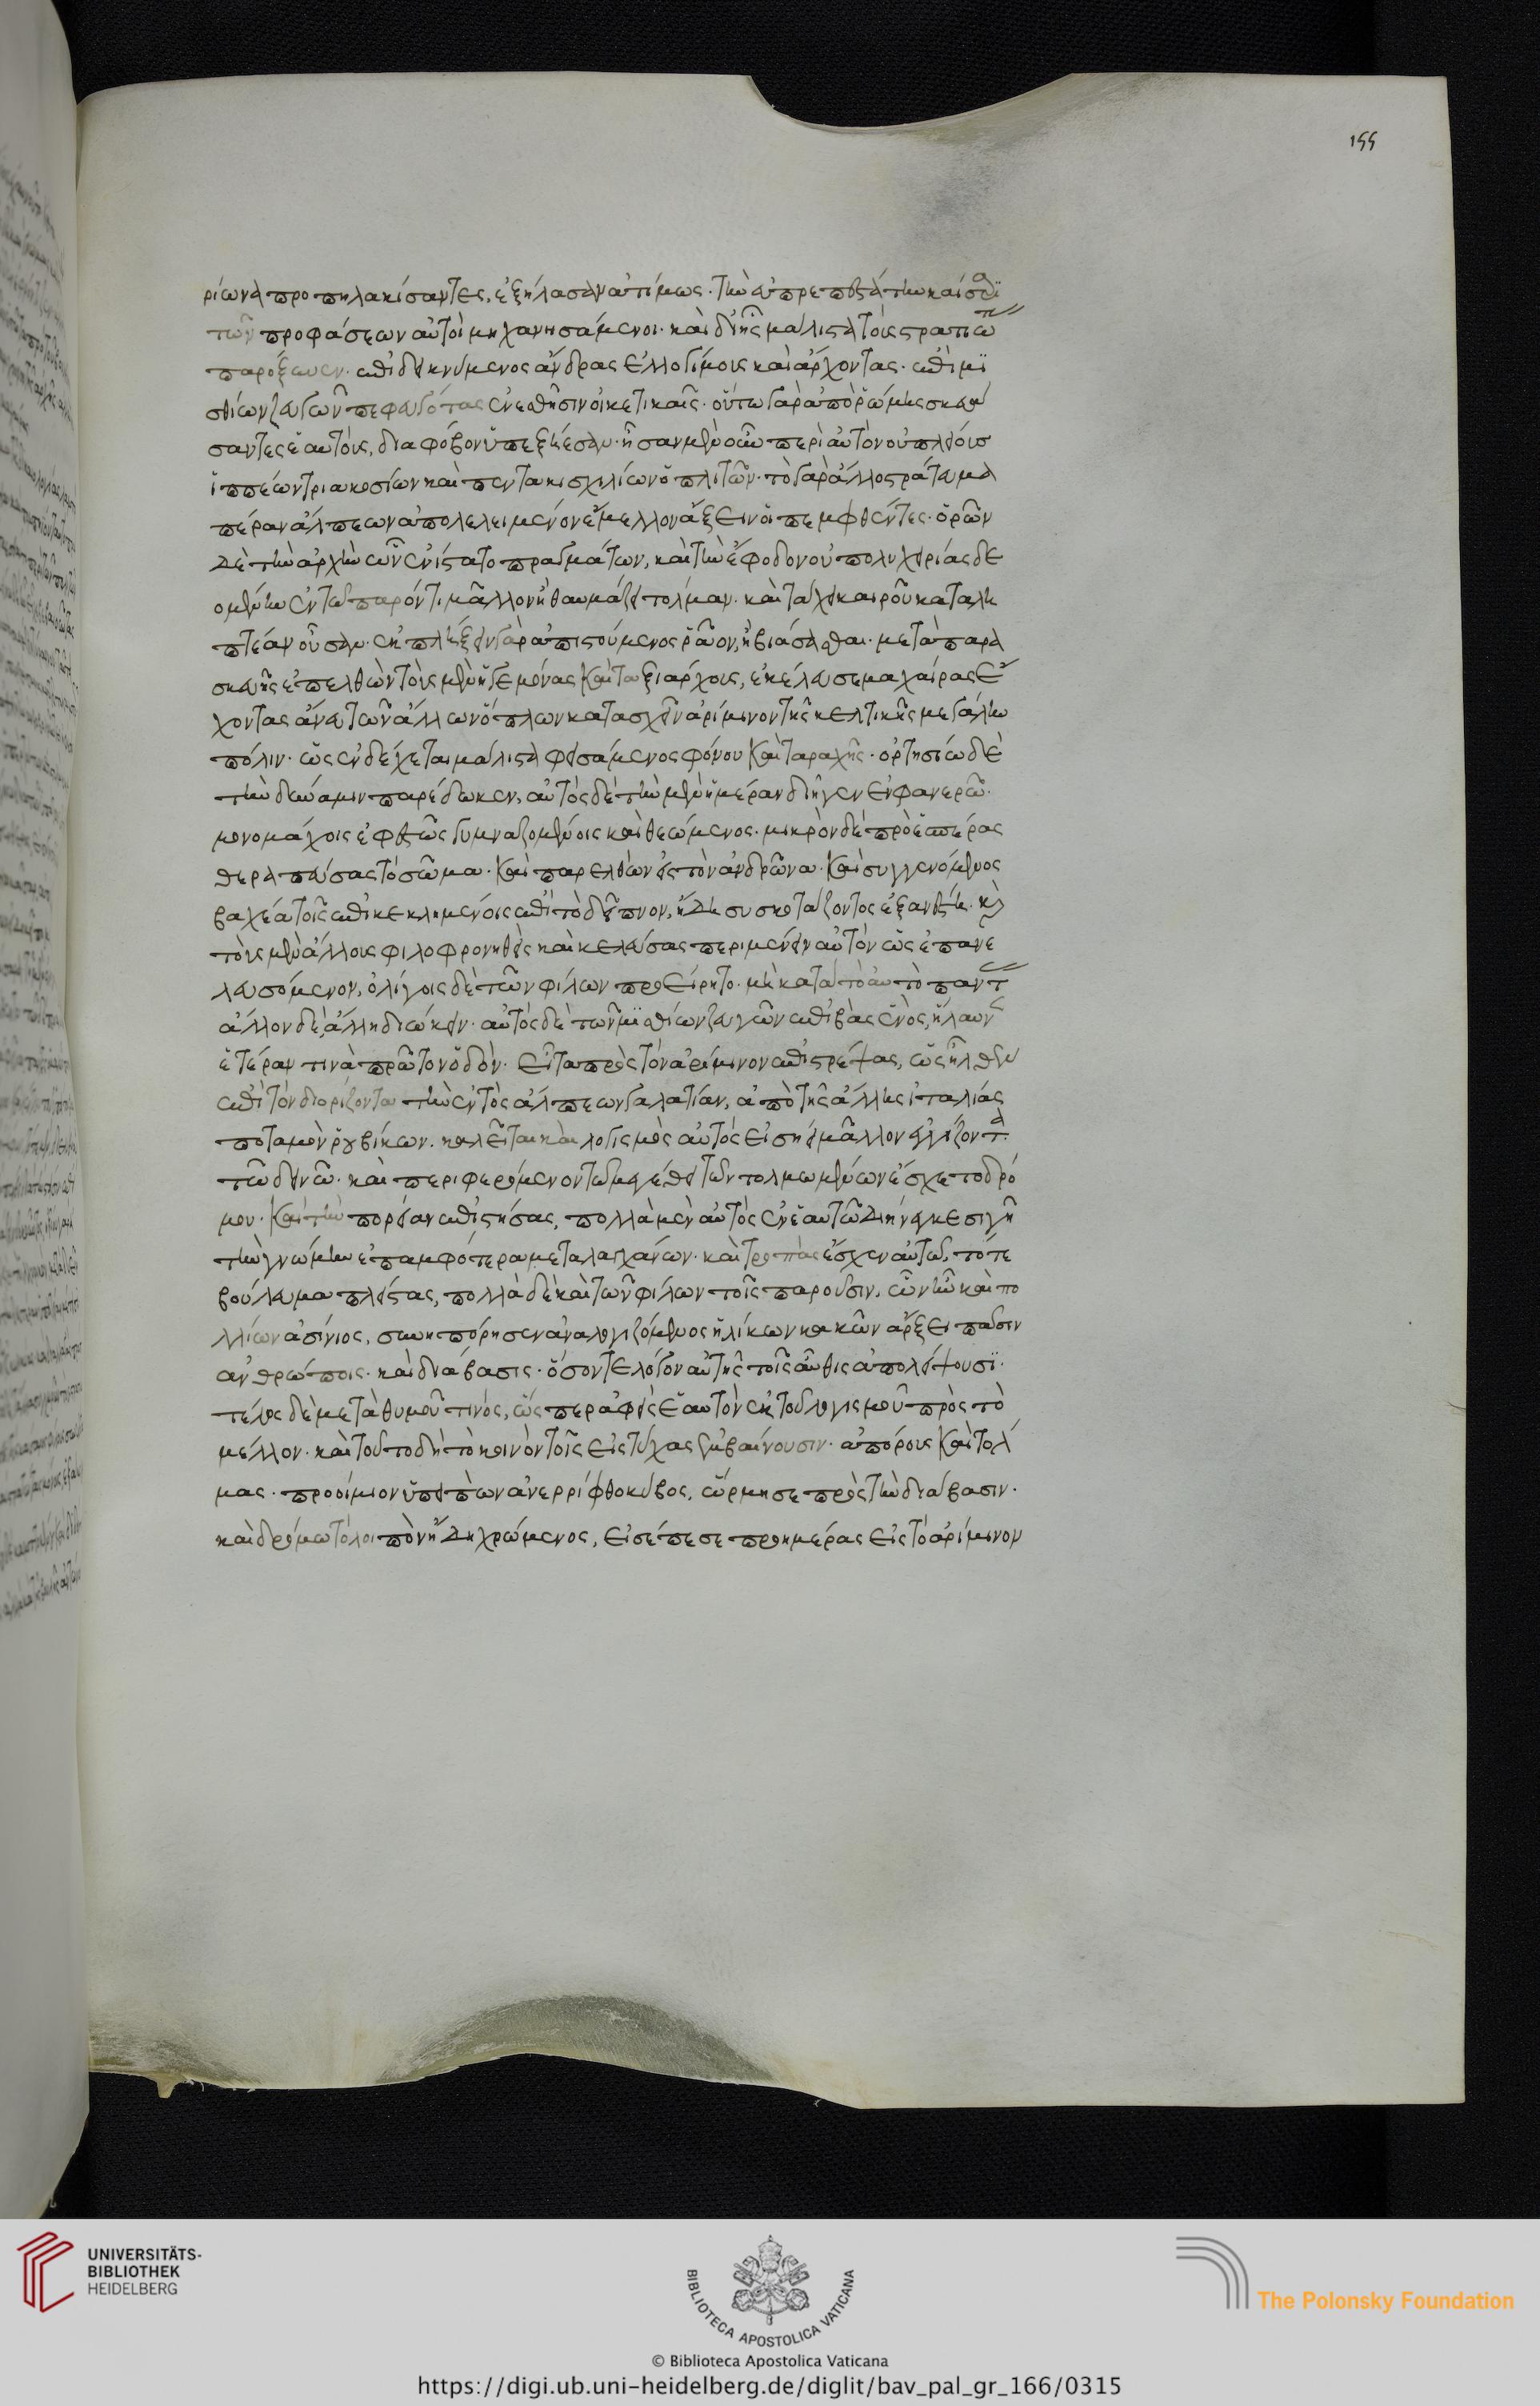 155
ρίωνα προπηλακίσαντες, ἐξήλασαν ἀτίμως. τὴν εὐπρεπεστάτην καίσαρϊ
τῶν προφάσεων αὐτοὶ μηχανησάμενοι. καὶ δι' ἧς μάλιστα τοὺς στρατιώτ
παρόξυνεν. ἐπιδεικνύμενος ἄνδρας ἐλλογίμους καὶ ἄρχοντας. ἐπὶ μϊ
σθίων ζευγῶν πεφευγότας ἐν ἐσθῆσιν οἰκετικαῖς. οὕτω γὰρ ἀπὸ ῥώμης σκευά
σαντες ἑαυτοὺς, δια φόβον ὑπεξῄεσαν. ἦσαν μὲν οὖν περὶ αὐτὸν οὐ πλείους
ἱππέων τριακοσίων καὶ πεντακισχιλίων ὁπλιτῶν. τὸ γὰρ ἄλλο στράτευμα
πέραν ἄλπεων ἀπολελειμένον ἔμελλον ἄξειν οἱ πεμφθέντες. ὁρῶν
δὲ τὴν ἀρχὴν ὧν ἐνίστατο πραγμάτων, καὶ τὴν ἔφοδον οὐ πολυχειρίας δε
ομένην ἐν τῷ παρόντι, μᾶλλον ἢ θαυμάζει τολμαν. καὶ τάχει καιροῦ καταλη
πτέαν οὖσαν. ἐκπλήξειν γὰρ ἀπιστούμενος ῥᾶον, ἢ βιάσασθαι. μετὰ παρα
σκευῆς ἐπελθὼν τοὺς μὲν ἡγεμόνας καὶ ταξιάρχους, ἐκέλευσε μαχαίρας ἔ
χοντας ἄνευ τῶν ἄλλων ὅπλων κατασχεῖν ἀρίμινον τῆς κελτικῆς μεγάλην
πόλιν. ὡς ἐνδέχεται μάλιστα φεισάμενος φόνου καὶ ταραχῆς. ὁρτησίω δὲ
τὴν δύναμιν παρέδωκεν, αὐτὸς δὲ τὴν μὲν ἡμέραν διῆγεν ἐν φανερῶ.
μονομάχοις ἐφεστὼς γυμναζομένοις καὶ θεώμενος. μικρὸν δὲ πρὸ ἑσπέρας
θεραπεύσας τὸ σῶμα. καὶ παρελθὼν εἰς τὸν ἀνδρῶνα. καὶ συγγενόμενος
βαχέα τοῖς ἐπικεκλημένοις ἐπὶ τὸ δεῖπνον, ἤδη συσκοτάζοντος ἐξανέστη. καὶ
τοὺς μὲν ἄλλους φιλοφρονηθεὶς καὶ κελεύσας περιμένειν αὐτὸν ὡς ἐπανε
λευσόμενον, ὀλίγοις δὲ τῶν φίλων προείρητο. μὴ κατα τὸ αὐτὸ παντ
ἄλλον δὲ ἄλλη διώκειν. αὐτὸς δὲ τῶν μϊσθίων ζευγῶν ἐπιβὰς ἑνὸς, ἤλαυν
ἑτέραν τινὰ πρῶτον ὁδόν. εἶτα πρὸς τὸν ἀρίμινον ἐπιστρέψας, ὡς ἦλθεν
ἐπὶ τὸν διορίζοντα τὴν ἐντὸς ἄλπεων γαλατίαν, ἀπὸ τῆς ἄλλης ἰταλίας
ποταμὸν ῥουβίκων. καλεῖται καὶ λογισμὸς αὐτὸς εἰσῄει μᾶλλον ἐγγίζοντα
τῶ δεινῶ. καὶ περιφερόμενον τῶ μεγέθει τῶν τολμωμένων ἔσχετο δρό
μου. καὶ τὴν πορείαν ἐπιστήσας, πολλὰ μὲν αὐτὸς ἐν ἑαυτῶ διήνεγκε σιγῆ
τὴν γνώμην ἐπαμφότερα μεταλαγχάνων. καὶ τροπὰς ἔσχεν αὐτῶ, τότε
βούλευμα πλείστας, πολλὰ δὲ καὶ τῶν φίλων τοῖς παροῦσιν, ὧν ἦν καὶ πο
λλίων ἀσίνιος, συνηπόρησεν ἀναλογιζόμενος ἡλίκων κακῶν ἄρξει πᾶσιν
ἀνθρώποις. καὶ διάβασις. ὅσον τε λόγον αὐτῆς τοῖς αὖθις ἀπολείψουσϊ.
τέλος δὲ μετὰ θυμοῦ τινὸς, ὥσπερ ἀφεὶς ἑαυτὸν ἐκ τοῦ λογισμοῦ πρὸς τὸ
μέλλον. καὶ τοῦτο δὴ τὸ κοινὸν τοῖς εἰς τύχας ἐμβαίνουσιν. ἀπόρους καὶ τολ
μας. προοίμιον ὑπειπὼν ἀνερρίφθο κύβος, ὥρμησε πρὸς τὴν διάβασιν.
καὶ δρόμω τὸ λοιπὸν ἤδη χρώμενος, εἰσέπεσε προημέρας εἰς τὸ ἀρίμινον
UNIVERSITÄTS-
BIBLIOTHEK
HEIDELBERG
BIBLIOTECA APOSTOLICA VATICANA
The Polonsky Foundation
© Biblioteca Apostolica Vaticana
https://digi.ub.uni-heidelberg.de/diglit/bav_pal_gr_166/0315